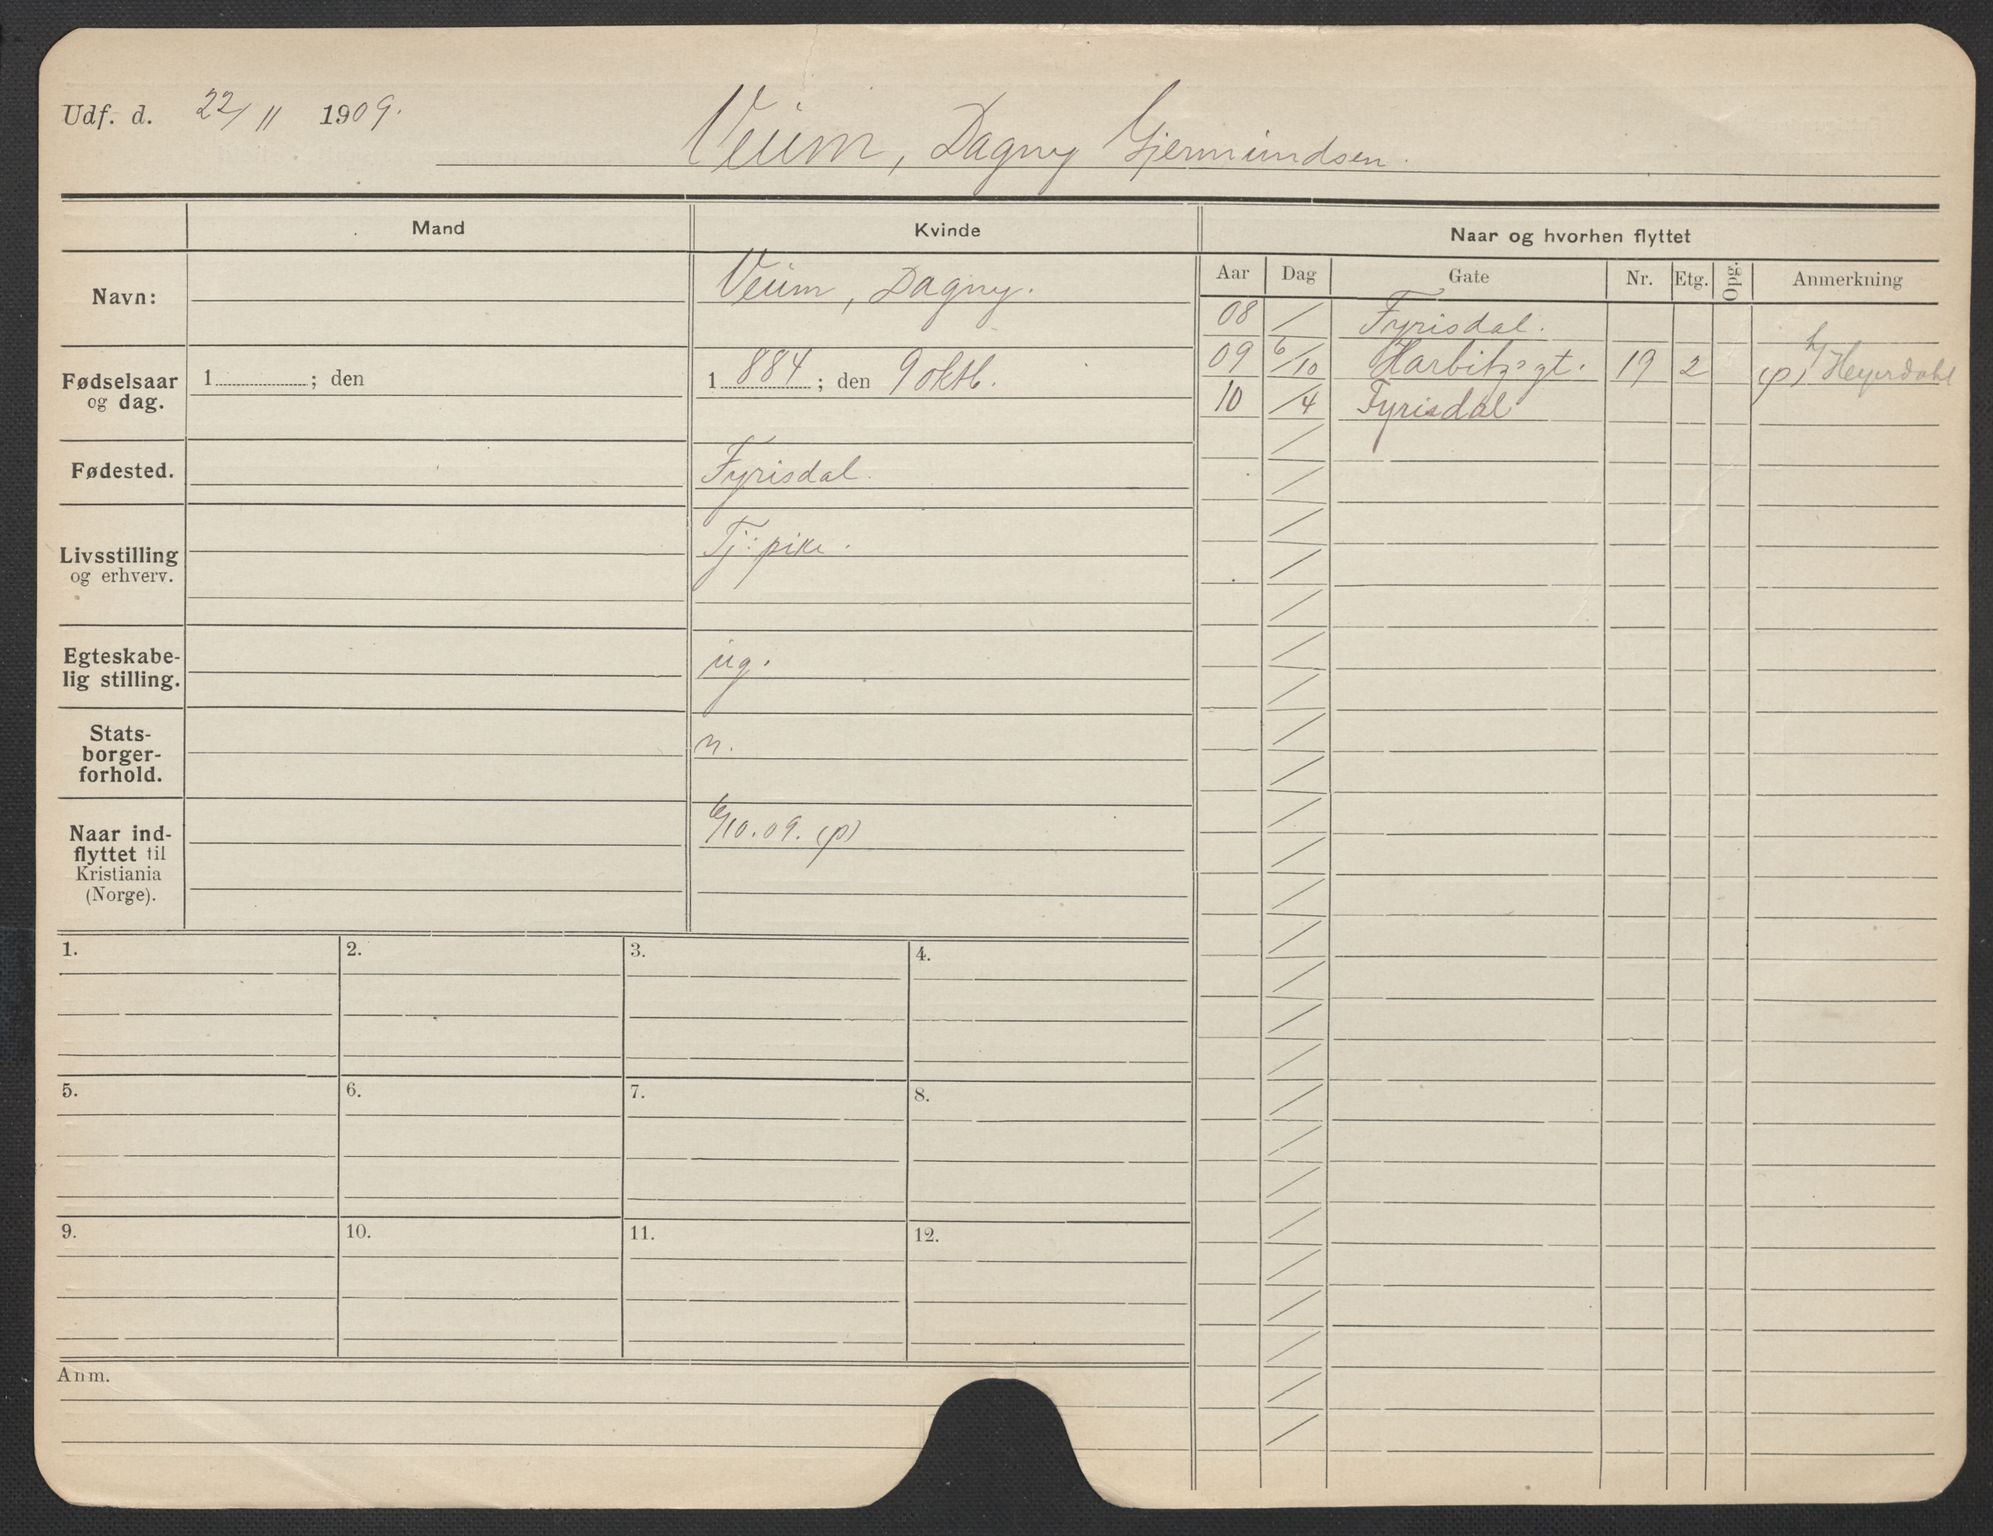 Udf. d. 22/11 1909.
Veum, Dagny Gjermundsen.
Mand
Kvinde
Naar og hvorhen flyttet
Aar Dag Gate Nr. Etg. Opg. Anmerkning
Navn:
Veum, Dagny.
Fødselsaar
og dag.
1 ; den
1884 ; den 9 oktb.
Fødested.
Fyrisdal.
Livsstilling
og erhverv.
Tj: pike.
Egteskabe-
lig stilling.
ug.
Stats-
borger-
forhold.
n.
Naar ind-
flyttet til
Kristiania
(Norge).
6/10.09. (p)
08 / Fyrisdal.
09 6/10 Harbitz's gt. 19 2 (p) h/ Heyerdahl
10 /4 Fyrisdal
1. 2. 3. 4.
5. 6. 7. 8.
9. 10. 11. 12.
Anm.